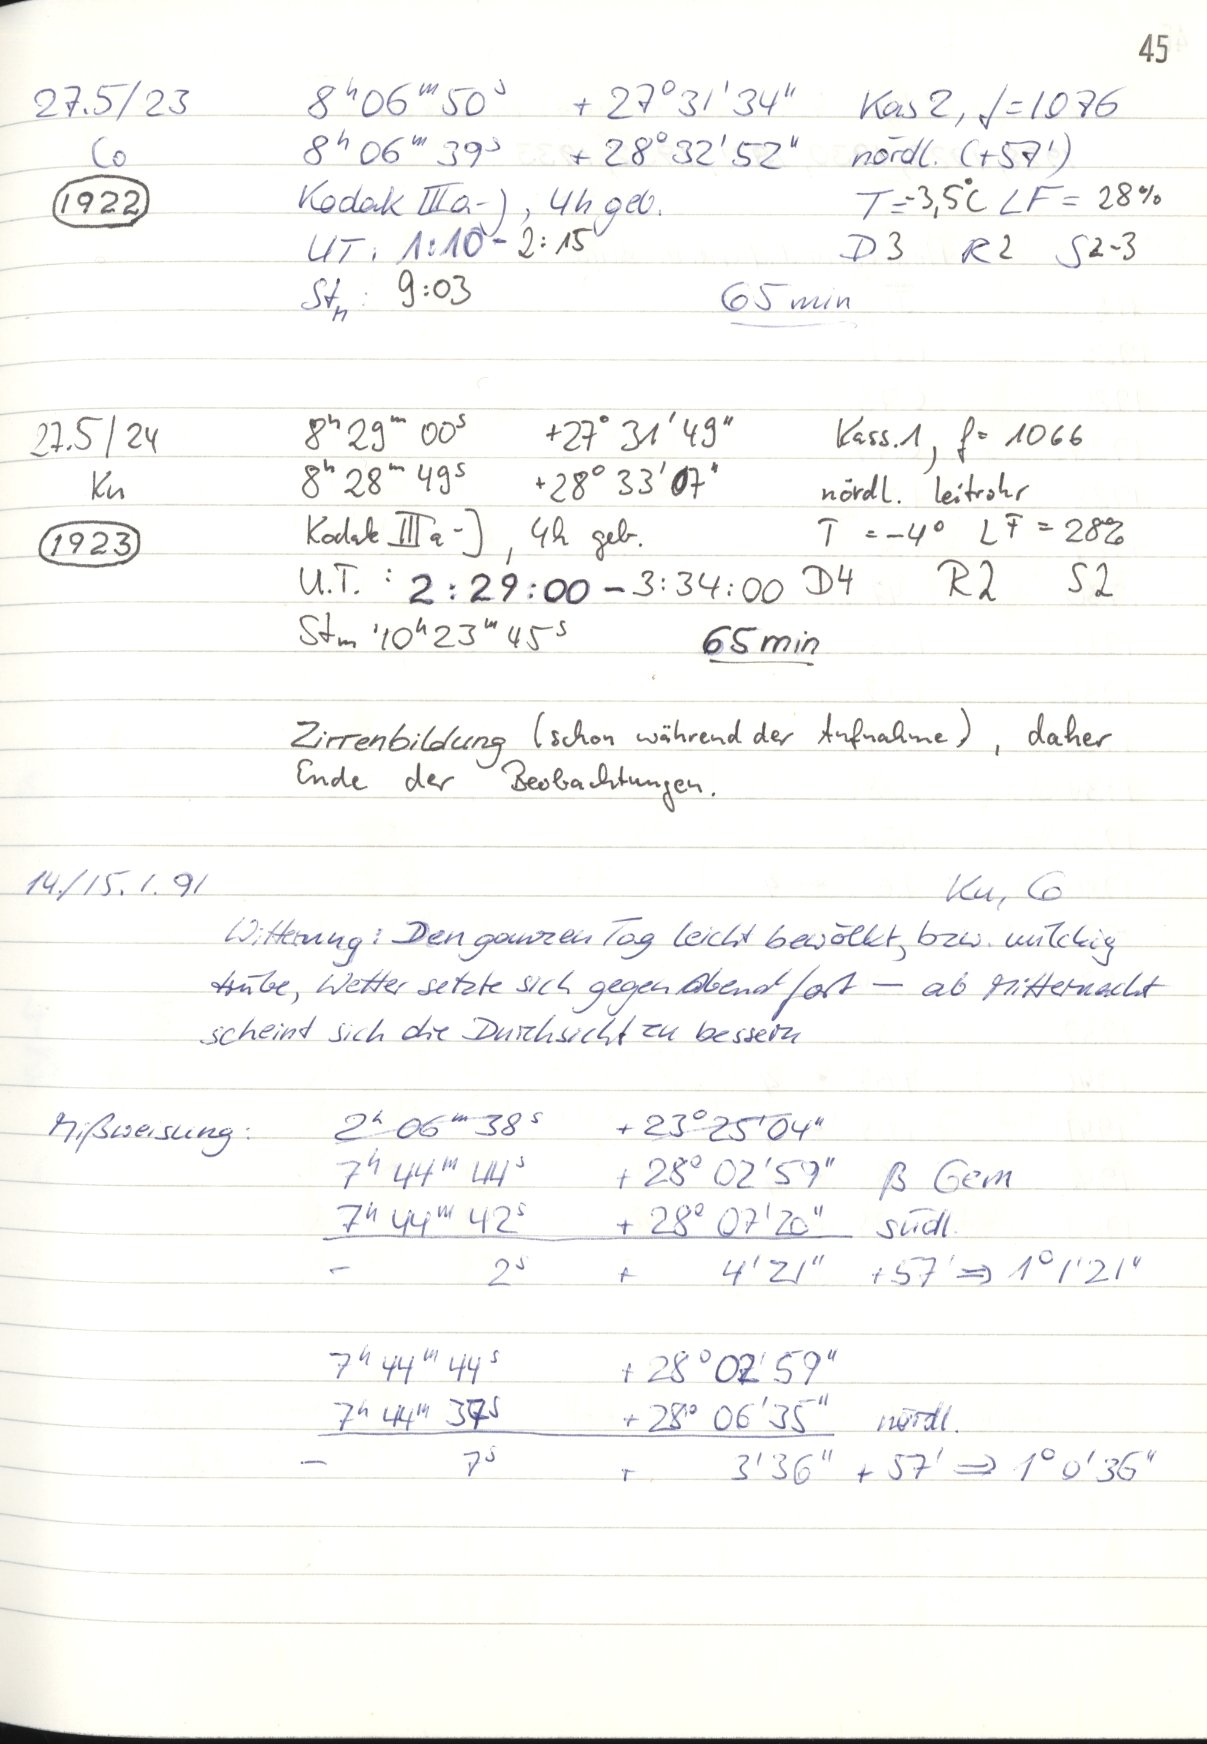 45
27.5/23 8ʰ06ᵐ50ˢ +27°31'34" Kas2, f=1076
Co 8ʰ06ᵐ39ˢ +28°32'52" nördl. (+57')
1922 Kodak IIIa-J, 4h geb. T=-3,5°C LF = 28%
UT: 1:10 - 2:15 D3 R2 S2-3
Stₙ: 9:03 65 min
27.5/24 8ʰ29ᵐ00ˢ +27°31'49" Kass.1, f= 1066
Ku 8ʰ28ᵐ49ˢ +28°33'07" nördl. Leitrohr
1923 Kodak IIIa-J, 4h geb. T = -4° LF = 28%
U.T.: 2:29:00 - 3:34:00 D4 R2 S2
Stₘ 10ʰ23ᵐ45ˢ 65 min
Zirrenbildung (schon während der Aufnahme), daher
Ende der Beobachtungen.
14./15.1.91 Ku, Co
Witterung: Den ganzen Tag leicht bewölkt, bzw. milchig
trübe, Wetter setzte sich gegen Abend fort — ab Mitternacht
scheint sich die Durchsicht zu bessern
Mißweisung: 2ʰ06ᵐ38ˢ +23°25'04"
7ʰ44ᵐ44ˢ +28°02'59" β Gem
7ʰ44ᵐ42ˢ +28°07'20" südl.
- 2ˢ + 4'21" +57' ⇒ 1°1'21"
7ʰ44ᵐ44ˢ +28°02'59"
7ʰ44ᵐ37ˢ +28°06'35" nördl.
- 7ˢ + 3'36" +57' ⇒ 1°0'36"